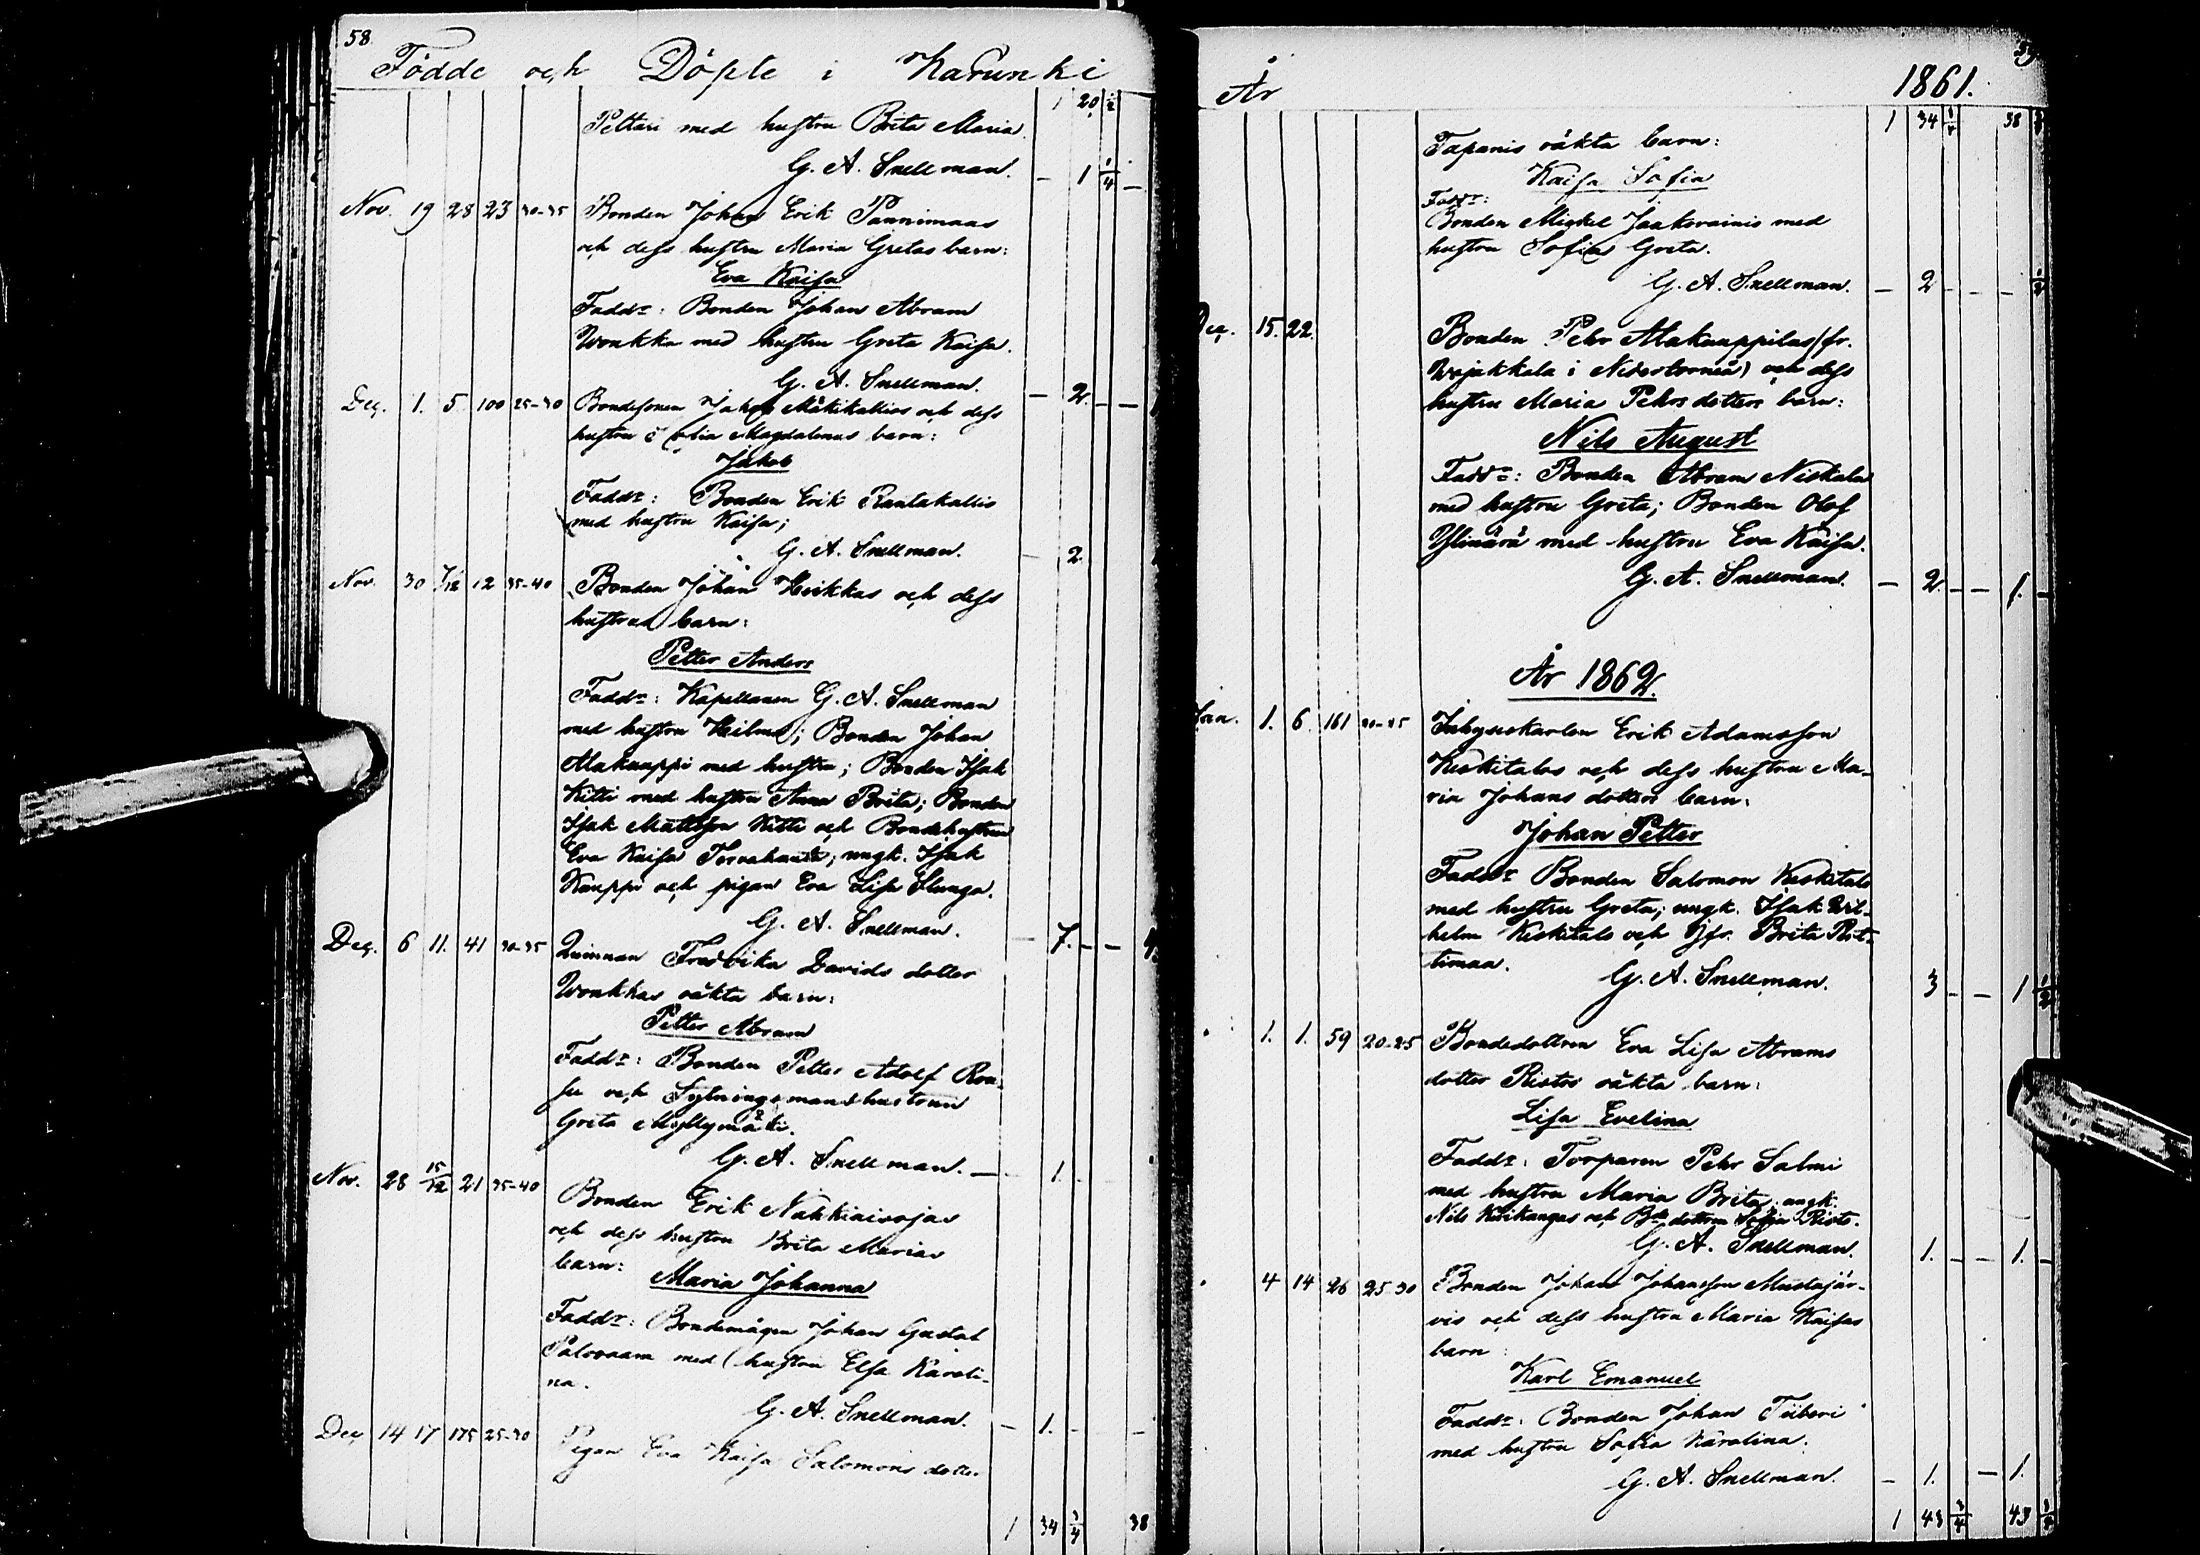 58
Födde och Döpte i Karunki
1 20 1/2
Pettari med hustru Brita Maria.
G. A. Snellman. — 1 1/4 —
Nov. 19 28 23 30-35 Bonden Johan Erik Pannimaas
och dess hustru Maria Gretas barn:
Eva Kaisa
Faddr: Bonden Johan Abram
Wonkka med hustru Greta Kaisa.
G. A. Snellman. — 2. — —
Dec. 1. 5. 100 25-30 Bondesonen Jakob Mäkikallios och dess
hustru Sofia Magdalenas barn:
Jakob
Faddr: Bonden Erik Rantakallio
med hustru Kaisa;
G. A. Snellman. — 2.
Nov. 30 7/12 12 35-40 Bonden Johan Heikkas och dess
hustrus barn:
Petter Anders
Faddr: Kapellanen G. A. Snellman
med hustru Hilma; Bonden Johan
Alakauppi med hustru; Bonden Isak
Kitti med hustru Anna Brita; Bonden
Isak Mattsson Kitti och Bondehustrun
Eva Kaisa; ungk. Isak
Kauppi och pigan Eva Lisa Slunga.
G. A. Snellman. — 7. — —
Dec. 6 11. 41 30-35 Qvinnan Fredrika Davids dotter
Wonkkas oäkta barn:
Petter Abram
Faddr: Bonden Petter Adolf Rou-
su och Sytningsmanshustrun
Greta Myllymäki.
G. A. Snellman. — 1.
Nov. 28 15/12 21 35-40 Bonden Erik Nakkiaisojas
och dess hustru Brita Marias
barn:
Maria Johanna
Faddr: Bondemågen Johan Gustaf
Palovaara med hustru Elsa Karoli-
na.
G. A. Snellman. — 1. — —
Dec. 14 17 175 25-30 Pigan Eva Kaisa Salomons dotter
1 34 3/4 38
År 1861.
59
1 34 3/4 38 3/4
Tapanis oäkta barn:
Kaisa Sofia
Faddr:
Bonden Mickel Jaakovainio med
hustru Sofia Greta.
G. A. Snellman. — 2 — — — 1/2
Dec. 15. 22. Bonden Pehr Alakauppilas (fr.
Wojakkala i Nedertorneå) och dess
hustru Maria Pehrsdotters barn:
Nils August
Faddr: Bonden Abram Niskala
med hustru Greta; Bonden Olof
Ylinärä med hustru Eva Kaisa.
G. A. Snellman. — 2. — — 1. —
År 1862.
Jan. 1. 6 161 Inhyseskarlen Erik Adamsson
Keskitalos och dess hustru Ma-
ria Johans dotters barn:
Johan Petter
Faddr Bonden Salomon Keskitalo
med hustru Greta; ungk. Isak Wil-
helm Keskitalo och Jfr. Brita Rit-
timaa.
G. A. Snellman. 3 — — 1 1/2
" 1. 1. 59 20-25 Bondedottren Eva Lisa Abrams
dotter Ristos oäkta barn:
Lisa Evelina
Faddr: Torparen Pehr Salmi
med hustru Maria Brita; ungk.
Nils Kuikangas och Bdedottren Sofia Risto.
G. A. Snellman. 1. — — 1. —
" 4 14 26 25-30 Bonden Johan Johansson Mustajär-
vis och dess hustru Maria Kaisas
barn:
Karl Emanuel
Faddr: Bonden Johan Tiiberi
med hustru Sofia Karolina.
G. A. Snellman. — 1. — 1.
1 43 3/4 43 3/4